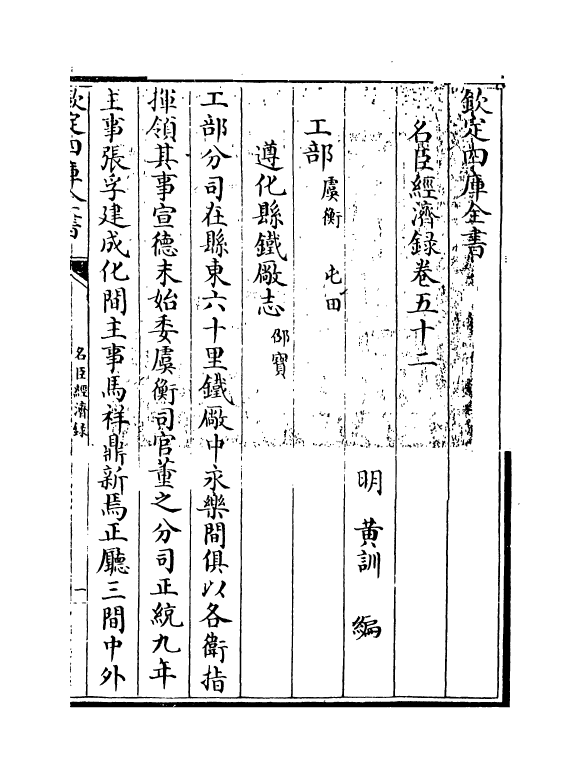 欽定四庫全書
名臣經濟録卷五十二
明 黄訓 編
工部虞衡 屯田
遵化縣鐵厰志邵寶
工部分司在縣東六十里鐵厰中永樂間俱以各衛指
揮領其事宣德末始委虞衡司官董之分司正統九年
主事張孚建成化間主事馬祥鼎新焉正廳三間中外
欽定四庫全書
名臣經濟録
一